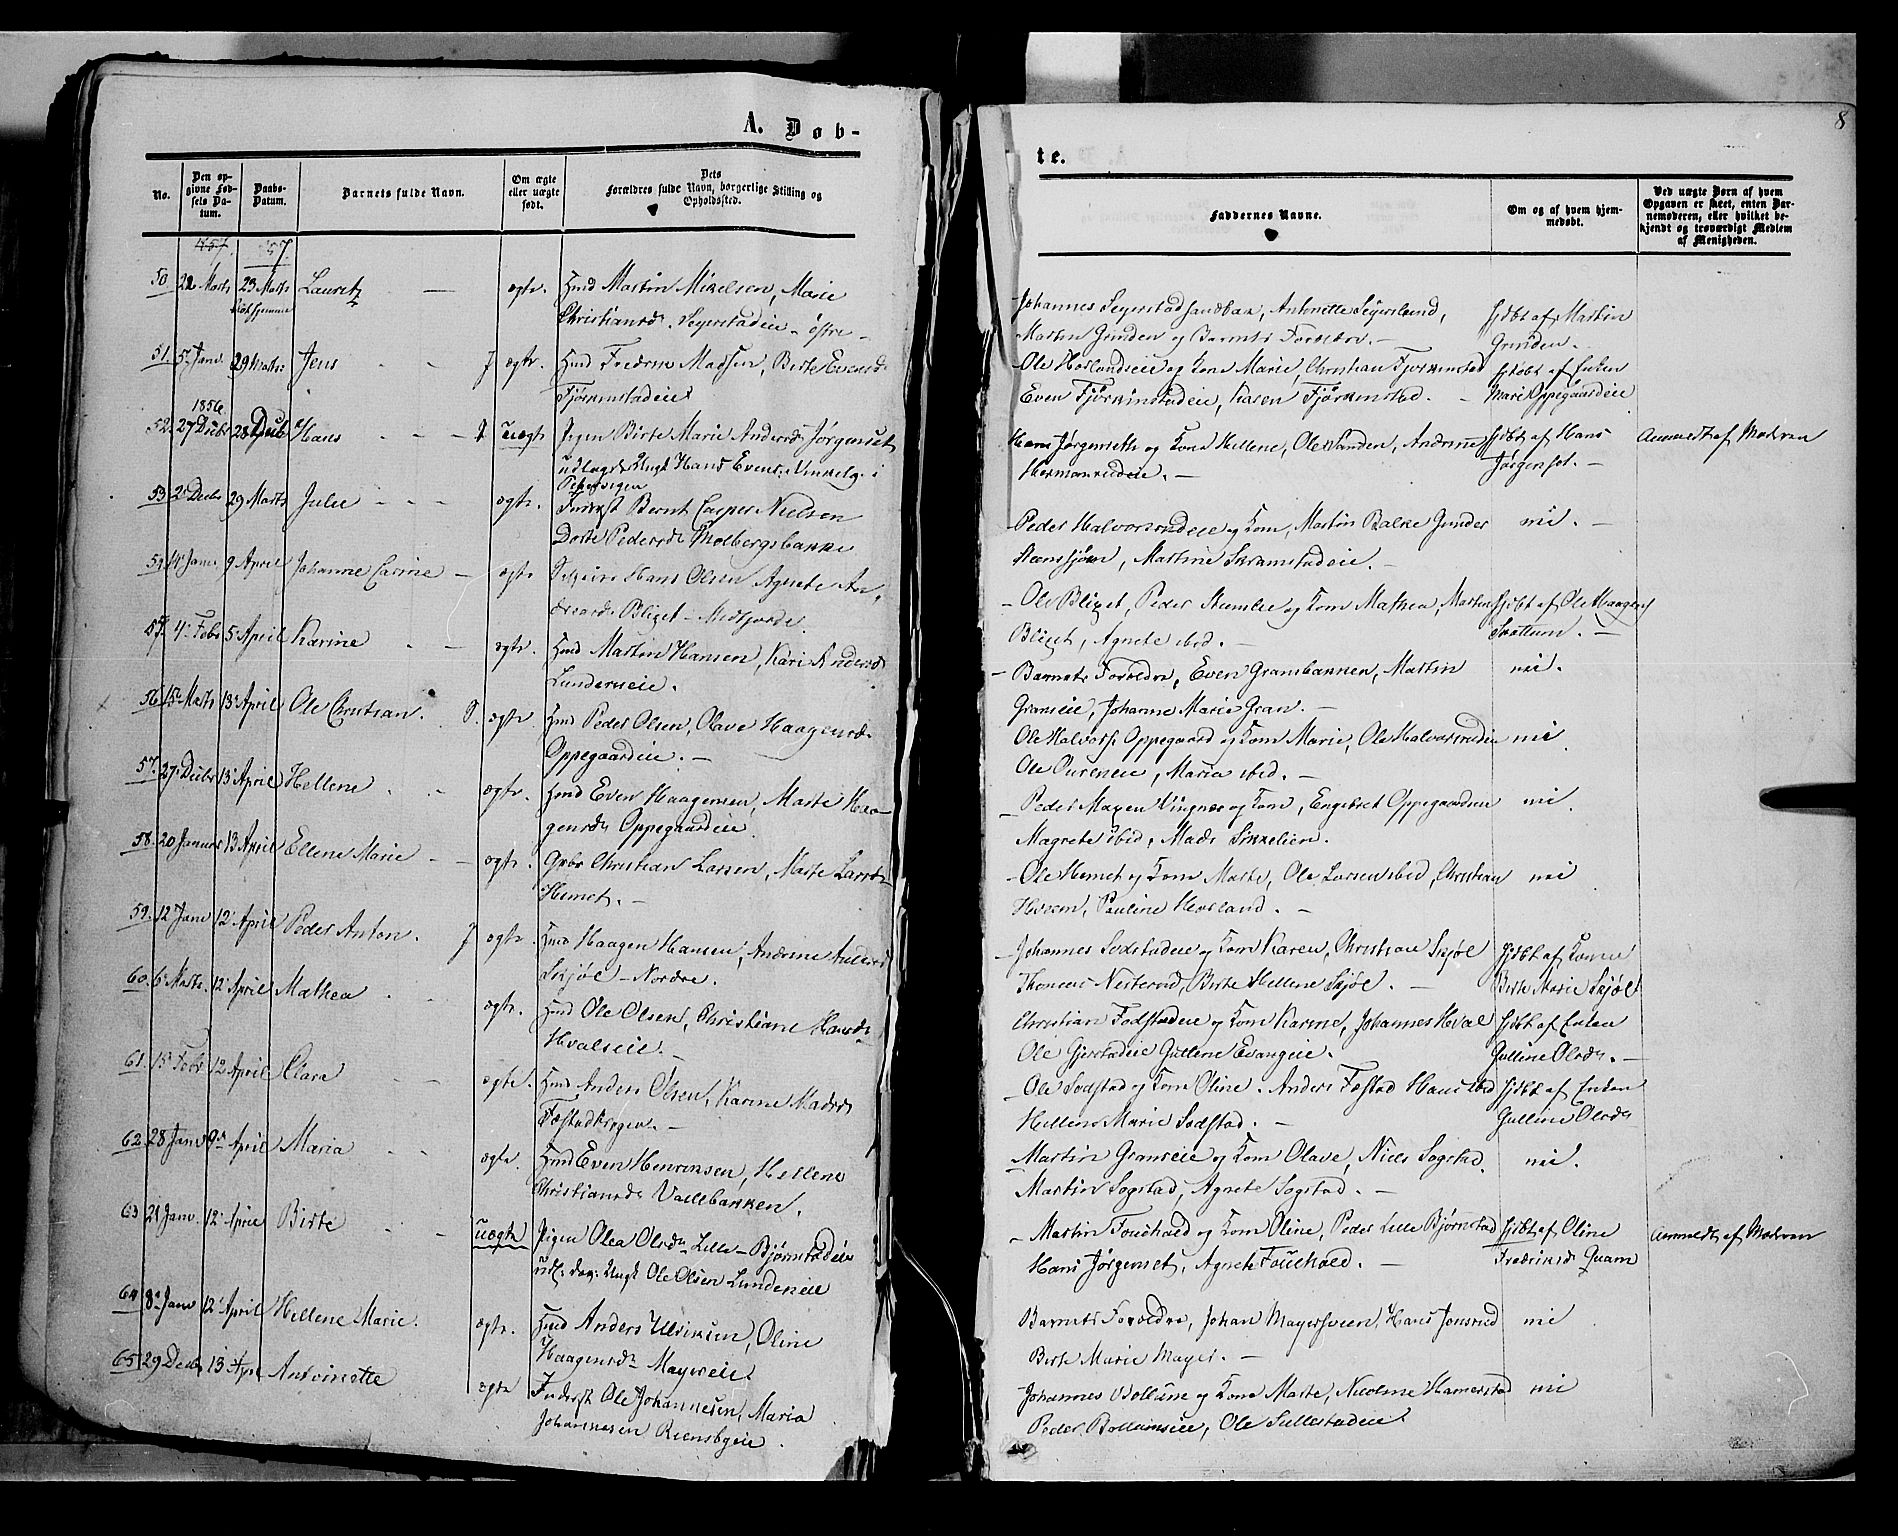 A. Døb-
No.
Den opgivne Fødsels Datum.
Daabs-Datum.
Barnets fulde Navn.
Om ægte eller uægte født.
Dets Forældres fulde Navn, borgerlige Stilling og Opholdssted.
1857. 57.
50. 22 Marts 23 Marts Lauritz — ægte. Hmd Martin Mikelsen, Marie
Christiansd. Segerstadeie østre
51. 5. Janv. 29 Marts Jens ægte. Hmd Fredrik Madsen, Birte Evensd
Fjørkenstadeie
1856.
52. 27 Decbr 28 Hans uægte Pigen Birte Marie Andersd Jørgenset
udlagde Ungk Hans Evens. i
53. 2 Decbr 29 Marts Julie ægte. Inderst Bernt Casper Nielsen
Dorte Pedersd Molbergsbakke
54. 14 Janv 9 April Johanne Carine — ægte Hans Olsen Agnete An
dersd Blizet
4 Febr 5 April Karine ægte. Hmd Martin Hansen, Kari Andersd
Lunderneie.
56. 15 Marts 13 April Ole Christian. ægte Hmd Peder Olsen, Olave Haagensd.
Oppegaardeie. —
57. 27 Decbr 13 April Hellene ægte. Hmd Even Haagensen, Marte Haa
gensd Oppegaardeie
58. 20 Januar 13 April Ellene Marie — ægte. Gbr Christian Larsen, Marte Larsd
Hemet. —
59. 12 Janv 12 April Peder Anton. ægte. Hmd Haagen Hansen, Andrine Andersd
Skjøl — Nordre.
60. 6 Marts. 12 April Mathea ægte. Hmd Ole Olsen, Christiane Hansd
Hvalseie. —
61. 15 Febr 12 April Clara ægte. Hmd Anders Olsen, Karine Madsd
62. 28 Janv 9 April Maria ægte. Hmd Even Henriksen, Hellene
Christiansd Vallebakken.
63 21 Janv. 12 April Birte uægte Pigen Olea Olsd Lille — Bjørnstadeie
udl: Ungk Ole Olsen Lundeneie
64 8 Janv 12 April Hellene Marie. ægte. Hmd Anders Ulriksen, Oline
Haagensd Mayereie
65 29 Decbr 13 Apr Antoinette ægte Inderst Ole Johannesen, Maria
Johannesen Kiensbyeie.
8
te.
Faddernes Navne.
Om og af hvem hjemmedøbt.
Ved uægte Børn af hvem Opgaven er skeet, enten Barnemoderen, eller hvilket bekjendt og troværdigt Medlem af Menigheden.
Johannes Segerstadsandbak, Antonette Segerstad, hjdbt af Martin
Martin Grinden og Barnets Forældre. — Grinden.
Ole Hovlandseie og Kone Marie, Christian Fjørkenstad hjdøbt af Enken
Even Fjørkenstadeie, Karen Fjørkenstad. — Mari Oppegaardeie
Hans Jørgenseth og Kone Hellene, Ole Sanden, Andrine hjdbt af Hans Anmeldt af Moderen
Hermanrudeie. — Jørgenset. —
Peder Halvorsrudeie og Kone, Martin Balke Gunder nei. —
Steensjøen, Martine Skramstadeie. —
Ole Blizet, Peder og Kone Mathea, Martin hjdbt af Ole Haagens
Blizet, Agnete ibid. — Skattum. —
Barnets Forældre, Even Granbakken, Martin nei.
Granseie, Johanne Marie Gran. —
Ole Halvors. Oppegaard og Kone Marie, Ole Halvorsrudeie nei
Ole Oureneie, Maria ibid. —
Peder Maxen og Kone, Engebret Oppegaarden nei.
Magrete ibid, Mads Sikkelien.
Ole Hemet og Kone Marte, Ole Larsen ibid, Christian nei
Hveem, Pauline Hovland. —
Johannes Sodstadeie og Kone Karen, Christian Skjøl hjdbt af Konen
Thomas Nesterud, Birte Hellene Skjøl. — Birte Marie Skjøl
Christian Fodstadeie og Kone Karine, Johannes Hval hjdbt af Enken
Ole Gjerstadeie Gulline Evangeie. Gulline Olsd. —
Ole Sodstad og Kone Oline. Anders Fostad Hans ibid hjdbt af Enken
Hellene Marie Sodstad. — Gulline Olsd
Martin Granseie og Kone Olave, Niels Sogstad. nei.
Martin Sogstad, Agnete Sogstad. —
Martin Fouchald og Kone Oline, Peder Lille Bjørnstad hjdbt af Oline Anmeldt af Moderen
Hans Jørgenset, Agnete Fouchald. — Fredriksd Quam
Barnets Forældre, Johan Mayersveen, Hans Jonsrud nei
Birte Marie Mayer. —
Johannes Bolline og Kone Marte, Nicoline Hamerstad nei
Peder, Ole Sullestadeie